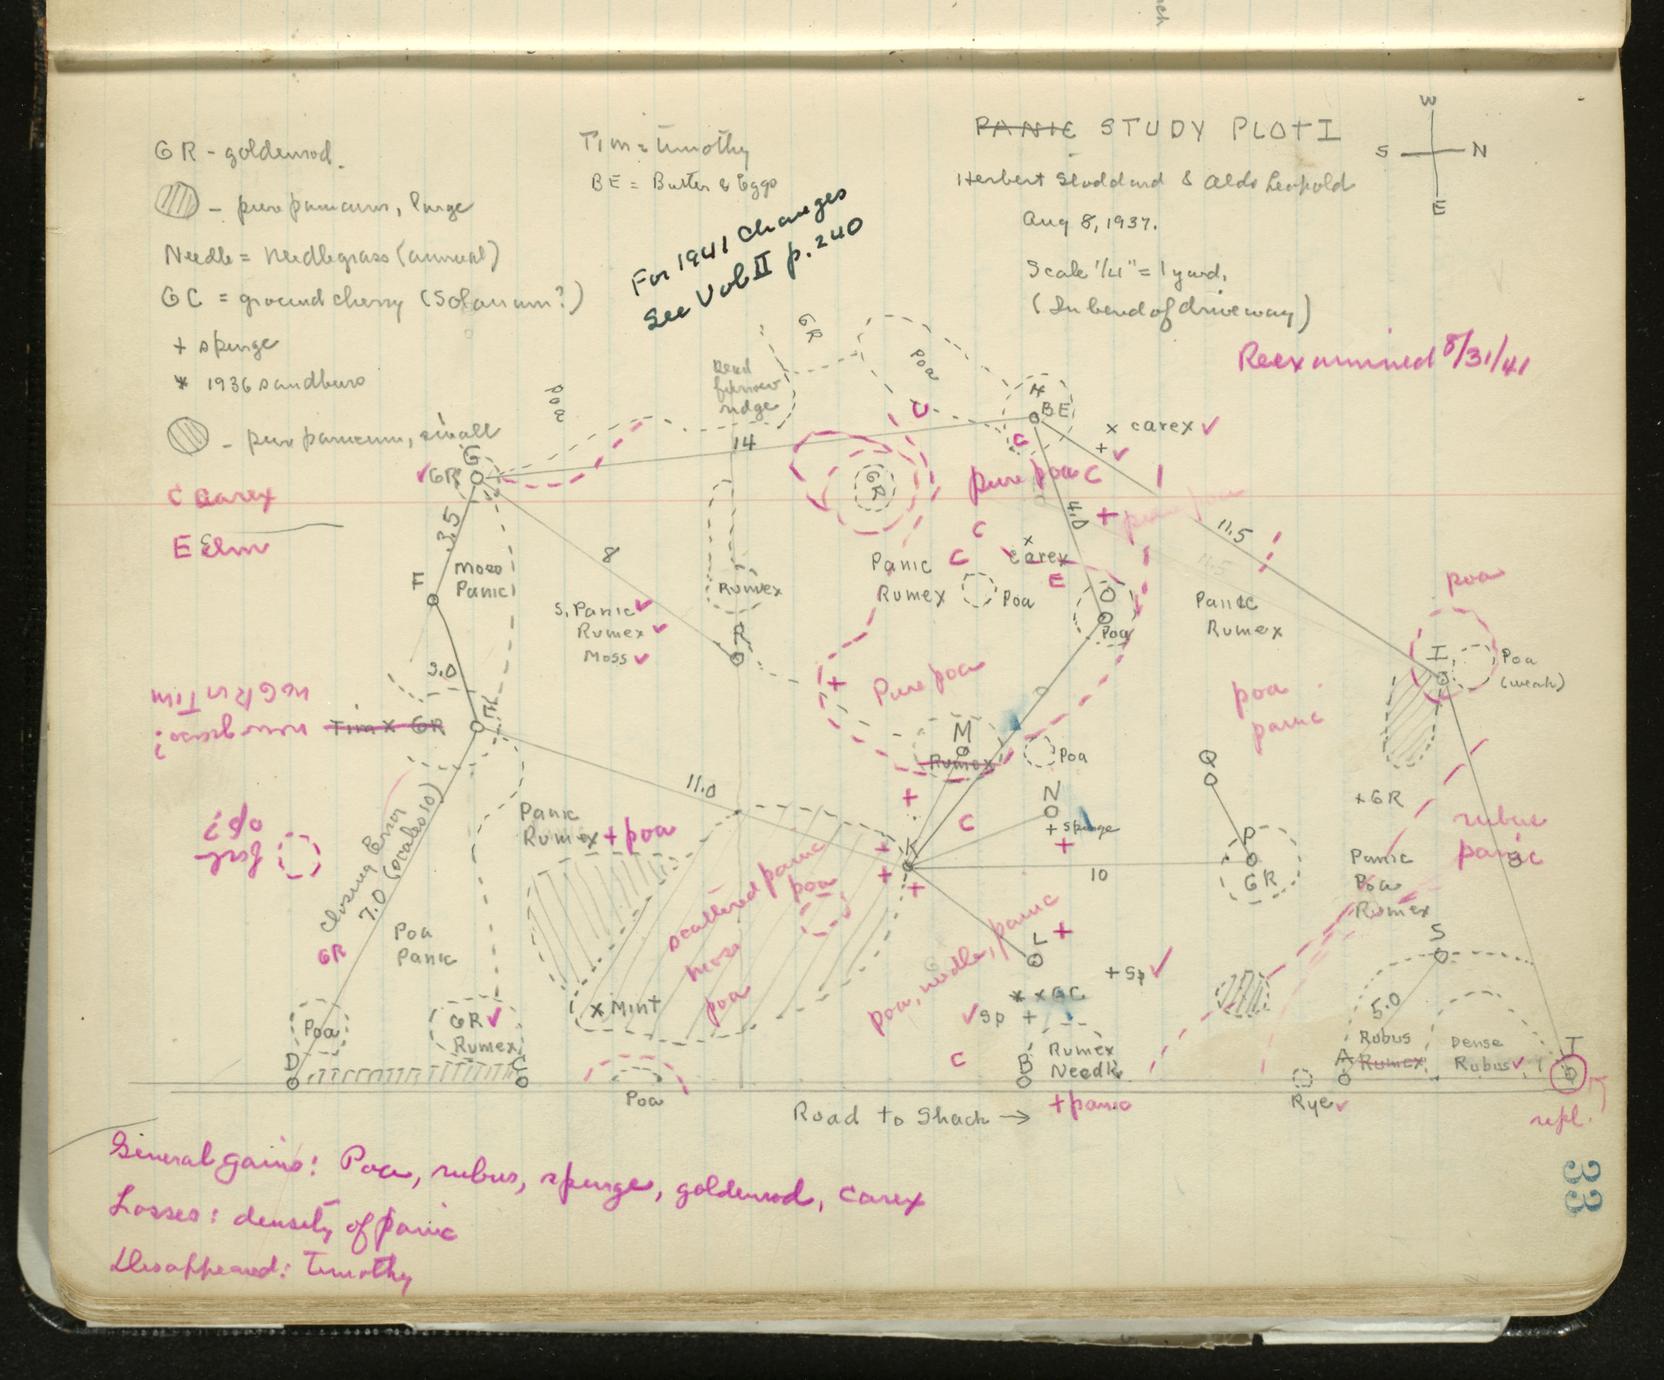 GR - goldenrod.
- pure panicum, large
Needle = Needlegrass (annual)
GC = ground cherry (Solanum?)
+ spurge
* 1936 sandburs
- pure panicum, small
C Carex
E Elm
Tim = timothy
BE = Butter & Eggs
For 1941 changes
See Vol II p. 240
PANIC STUDY PLOT I
Herbert Stoddard & Aldo Leopold
Aug 8, 1937.
Scale 1/4" = 1 yard.
(In bend of driveway)
W
S
N
E
Reexamined 8/31/41
GR
poa
Poa
Dead
furrow
ridge
H
BE
C
x carex ✓
+ ✓
14
G
✓GR
GR
pure poa C
+
4.0
11.5
11.5
3.5
8
F
Moss
Panic
S. Panic ✓
Rumex ✓
Moss ✓
Rumex
R
C
C
x
carex
E
Panic
Rumex
Poa
O
Poa
Panic
Rumex
poa
I
Poa
(weak)
no GR or Tim
now grass?
Tim x GR
3.0
E
+
Pure poa
poa
panic
M
Rumex
Poa
Q
11.0
N
+ spurge
+
+
C
K
+
+
+
10
P
GR
+GR
rubus
panic
Panic
Poa
Rumex
Closing Error
7.0 (scales 10)
GR
Poa
Panic
Panic
Rumex + poa
scattered panic
poa
moss
poa
x Mint
poa, needle, panic
L
+
+ Sp ✓
* x GC
✓ Sp +
C
B
Rumex
Needle
+ panic
S
5.0
Rubus
A Rumex
Dense
Rubus ✓
T
repl.
Rye ✓
Poa
D
GR ✓
Rumex
C
Poa
Road to Shack →
33
General gains: Poa, rubus, spurge, goldenrod, carex
Losses: density of panic
Disappeared: Timothy